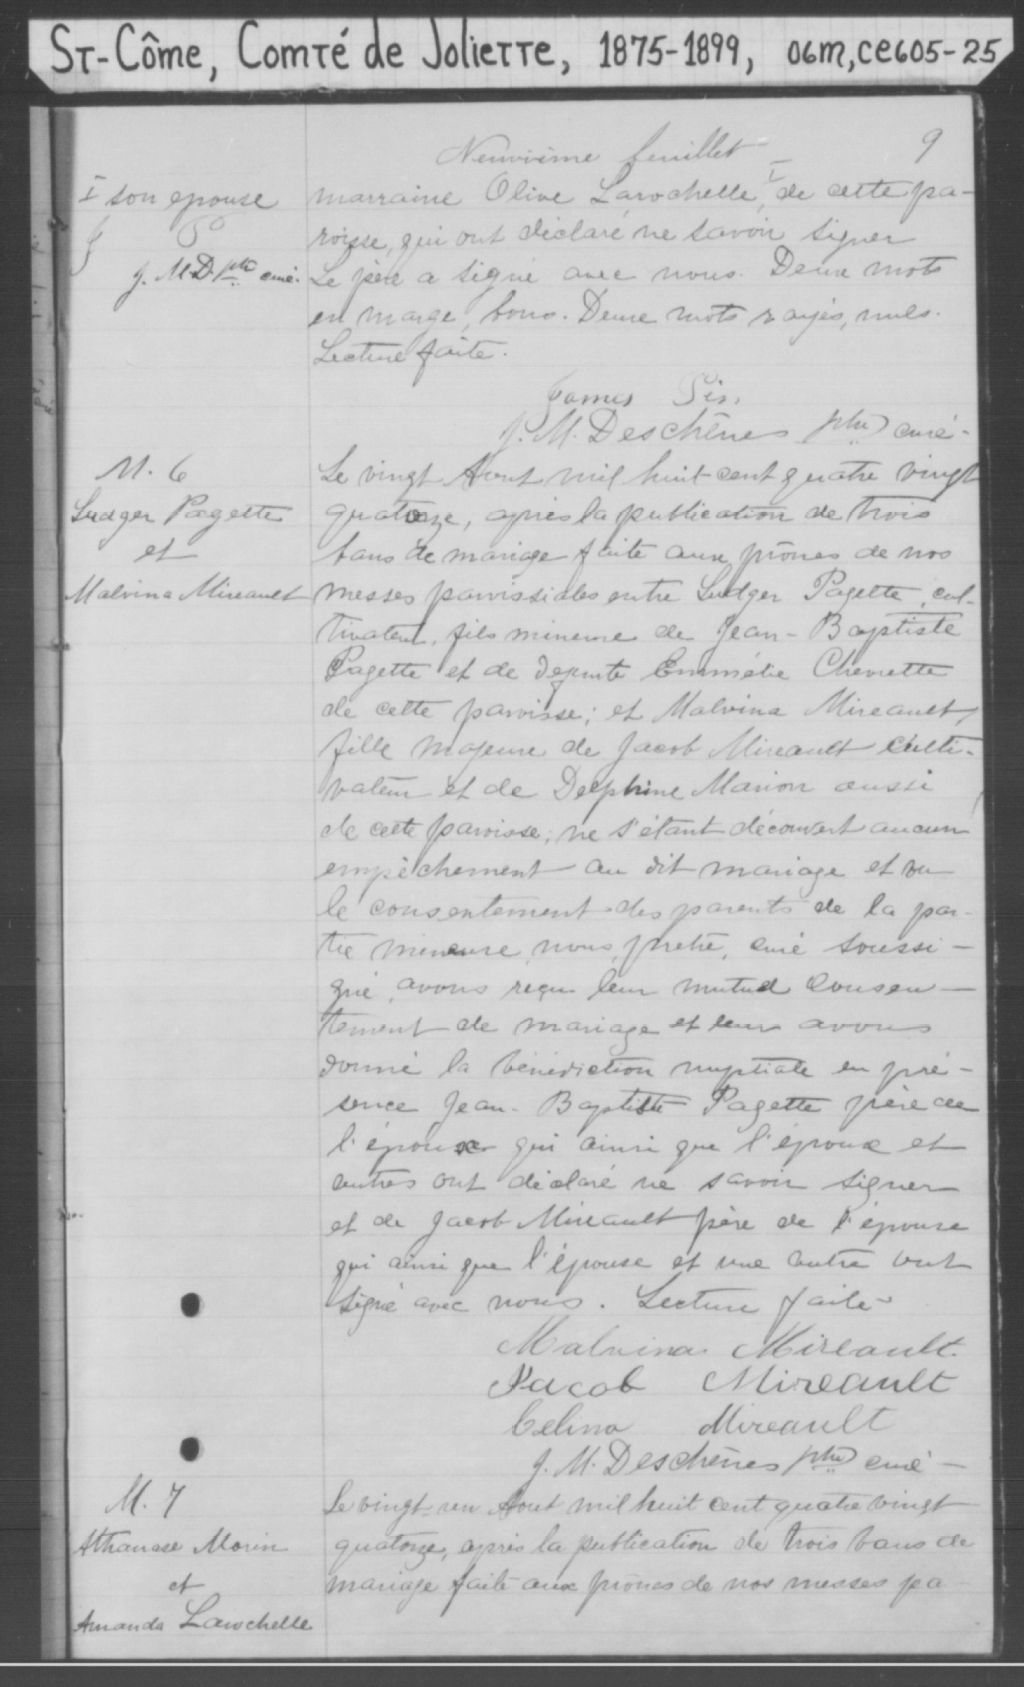 St-Côme, Comté de Joliette, 1875-1899, 06m,ce605-25
Neuvième feuillet
9
I son epouse
J. M. D. ptre curé.
marraine Olive Larochelle, I de cette pa-
roisse, qui ont déclaré ne savoir signer
Le père a signé avec nous. Deux mots
en marge, bons. Deux mots rayés, nuls.
Lecture faite.
J. M. Deschênes ptre curé-
M. 6
Ludger Pagette
et
Malvina Mireault
Le vingt Aout mil huit cent quatre vingt
quatorze, après la publication de trois
bans de mariage faite aux prônes de nos
messes paroissiales entre Ludger Pagette, cul-
tivateur, fils mineure de Jean-Baptiste
Pagette et de defunte Emmélie Chevrette
de cette paroisse; et Malvina Mireault,
fille majeure de Jacob Mireault culti-
vateur et de Delphine Marion aussi
de cette paroisse; ne s'étant découvert aucun
empêchement au dit mariage et vu
le consentement des parents de la par-
tie mineure, nous, prêtre, curé soussi-
gné, avons reçu leur mutuel consen-
tement de mariage et leur avons
donné la bénédiction nuptiale en pré-
sence Jean-Baptiste Pagette père de
l'époux qui ainsi que l'époux et
autres ont déclaré ne savoir signer
et de Jacob Mireault père de l'épouse
qui ainsi que l'épouse et une autre ont
signé avec nous. Lecture faite-
Malvina Mireault.
Jacob Mireault
Celina Mireault
J. M. Deschênes ptre curé-
M. 7
Athanase Morin
et
Amanda Larochelle
Le vingt-un Aout mil huit cent quatre vingt
quatorze, après la publication de trois bans de
mariage faite aux prônes de nos messes pa-